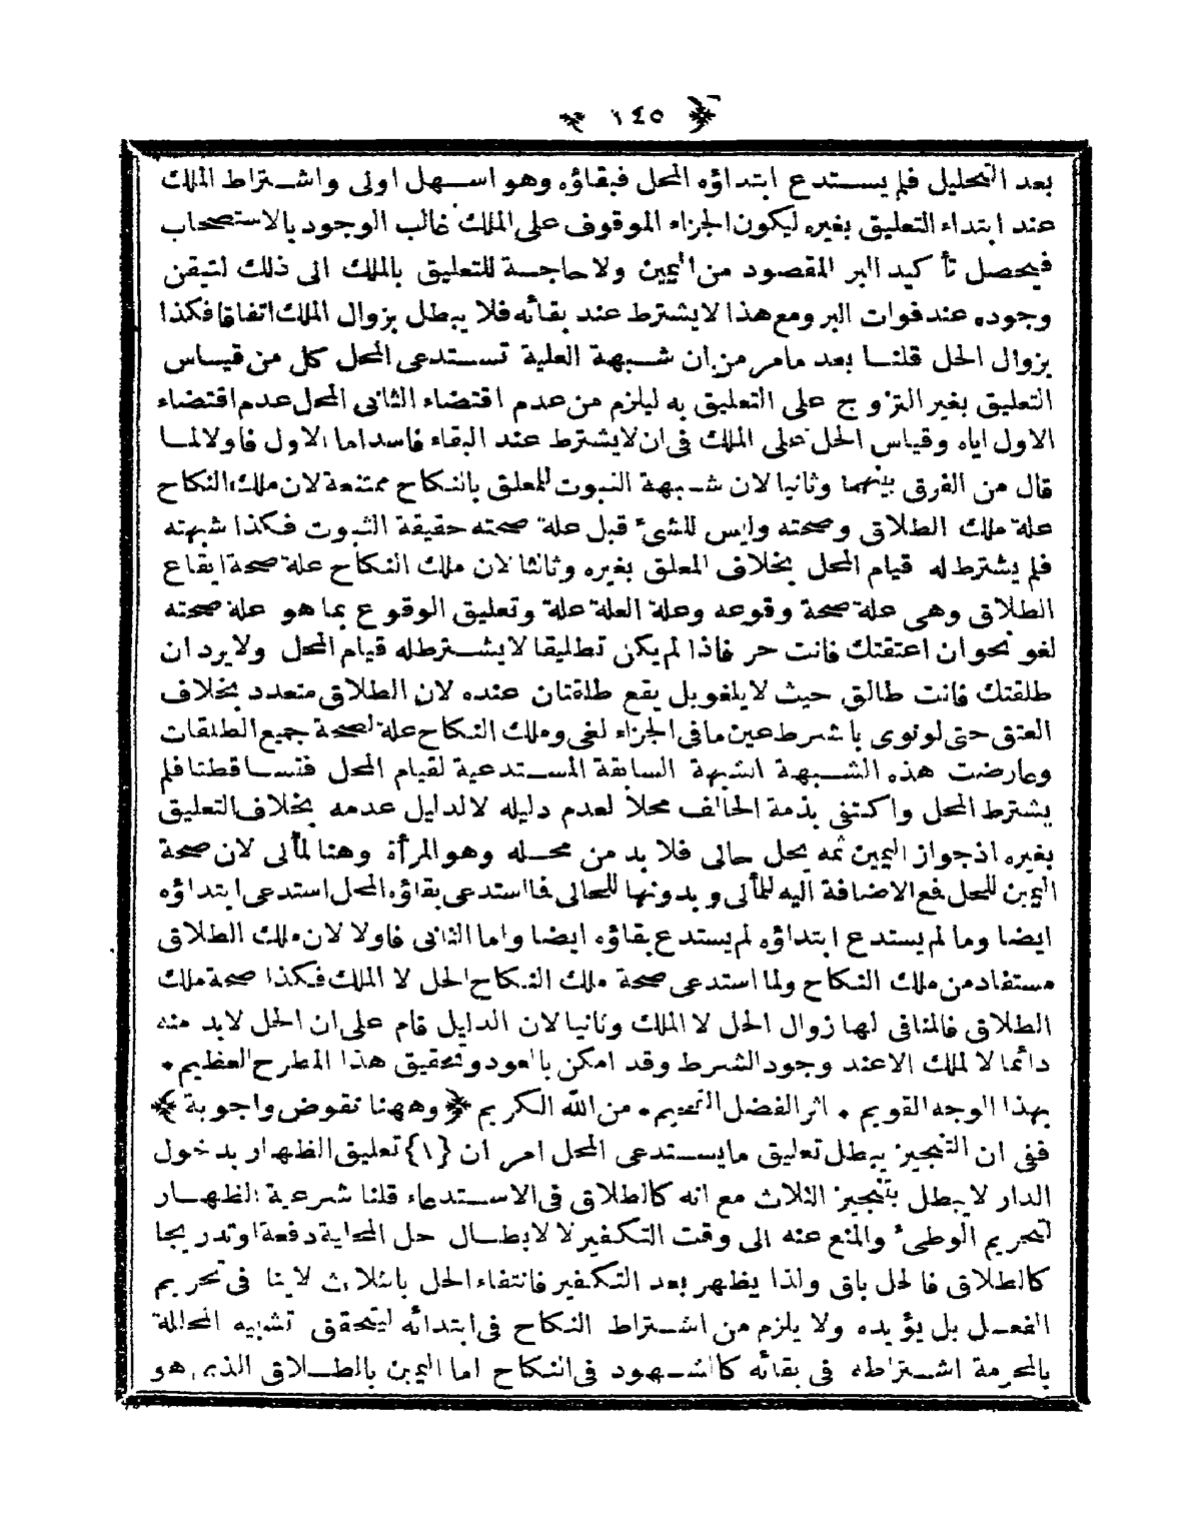 ﴿ ١٤٥ ﴾
بعد التحليل فلم يستدع ابتداؤه المحل فبقاؤه وهو اسهل اولى واشتراط الملك
عند ابتداء التعليق بغيره ليكون الجزاء الموقوف على الملك غالب الوجود بالاستصحاب
فيحصل تأكيد البر المقصود من اليمين ولا حاجة للتعليق بالملك الى ذلك لتيقن
وجوده عند فوات البر ومع هذا لا يشترط عند بقائه فلا يبطل بزوال الملك اتفاقا فكذا
بزوال الحل قلنا بعد مامر من ان شبهة العلية تستدعى المحل كل من قياس
التعليق بغير التزوج على التعليق به ليلزم من عدم اقتضاء الثانى المحل عدم اقتضاء
الاول اياه وقياس الحل على الملك فى ان لا يشترط عند البقاء فاسد اما الاول فاولا لما
قال من الفرق بينهما وثانيا لان شبهة الثبوت للمعلق بالنكاح ممتنعة لان ملك النكاح
علة ملك الطلاق وصحته وليس للشئ قبل علة صحته حقيقة الثبوت فكذا شبهته
فلم يشترط له قيام المحل بخلاف المعلق بغيره وثالثا لان ملك النكاح علة صحة ايقاع
الطلاق وهى علة صحة وقوعه وعلة العلة علة وتعليق الوقوع بما هو علة صحته
لغو نحو ان اعتقتك فانت حر فاذا لم يكن تطليقا لا يشترط له قيام المحل ولا يرد ان
طلقتك فانت طالق حيث لا يلغو بل يقع طلقتان عنده لان الطلاق متعدد بخلاف
العتق حتى لو نوى باشرط عين ما فى الجزاء لغى وملك النكاح علة لصحة جميع الطلقات
وعارضت هذه الشبهة الشبهة السابقة المستدعية لقيام المحل فتساقطتا فلم
يشترط المحل واكتفى بذمة الحالف محلا لعدم دليله لا لدليل عدمه بخلاف التعليق
بغيره اذ جواز اليمين ثمه بحل حالى فلا بد من محله وهو المرأة وهنا لمآلى لان صحة
اليمين للمحل فمع الاضافة اليه للمآلى وبدونها للحالى فما استدعى بقاؤه المحل استدعى ابتداؤه
ايضا وما لم يستدع ابتداؤه لم يستدع بقاؤه ايضا واما الثانى فاولا لان ملك الطلاق
مستفاد من ملك النكاح ولما استدعى صحة ملك النكاح الحل لا الملك فكذا صحة ملك
الطلاق فالمنافى لها زوال الحل لا الملك وثانيا لان الدليل قام على ان الحل لابد منه
دائما لا لملك الا عند وجود الشرط وقد امكن بالعود وتحقيق هذا المطرح العظيم •
بهذا الوجه القويم • اثر الفضل العميم • من الله الكريم ﴿ وههنا نقوض واجوبة ﴾
ففى ان التنجيز يبطل تعليق ما يستدعى المحل امر ان {١} تعليق الظهار بدخول
الدار لا يبطل بتنجيز الثلاث مع انه كالطلاق فى الاستدعاء قلنا شرعية الظهار
لتحريم الوطئ والمنع عنه الى وقت التكفير لا لابطال حل المحلية دفعة او تدريجا
كالطلاق فالحل باق ولذا يظهر بعد التكفير فانتفاء الحل بالثلاث لا ينافى تحريم
الفعل بل يؤيده ولا يلزم من اشتراط النكاح فى ابتدائه ليتحقق تشبيه المحللة
بالمحرمة اشتراطه فى بقائه كالشهود فى النكاح اما اليمين بالطلاق الذى هو